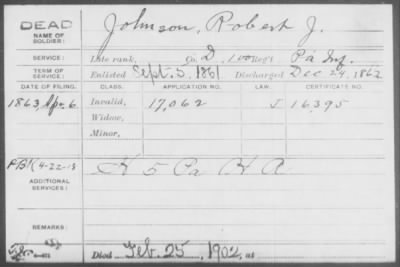 DEAD
NAME OF SOLDIER: Johnson, Robert J.
SERVICE: Late rank, Co. D, 100 Reg't Pa Inf.
TERM OF SERVICE: Enlisted Sept. 5, 1861 Discharged Dec 24, 1862
DATE OF FILING. CLASS. APPLICATION NO. LAW. CERTIFICATE NO.
1863, Apr. 6. Invalid, 17,062 J 16,395
Widow,
Minor,
(4-22-13 K 5 Pa H A
ADDITIONAL SERVICES:
REMARKS:
Died Feb. 25, 1902, at